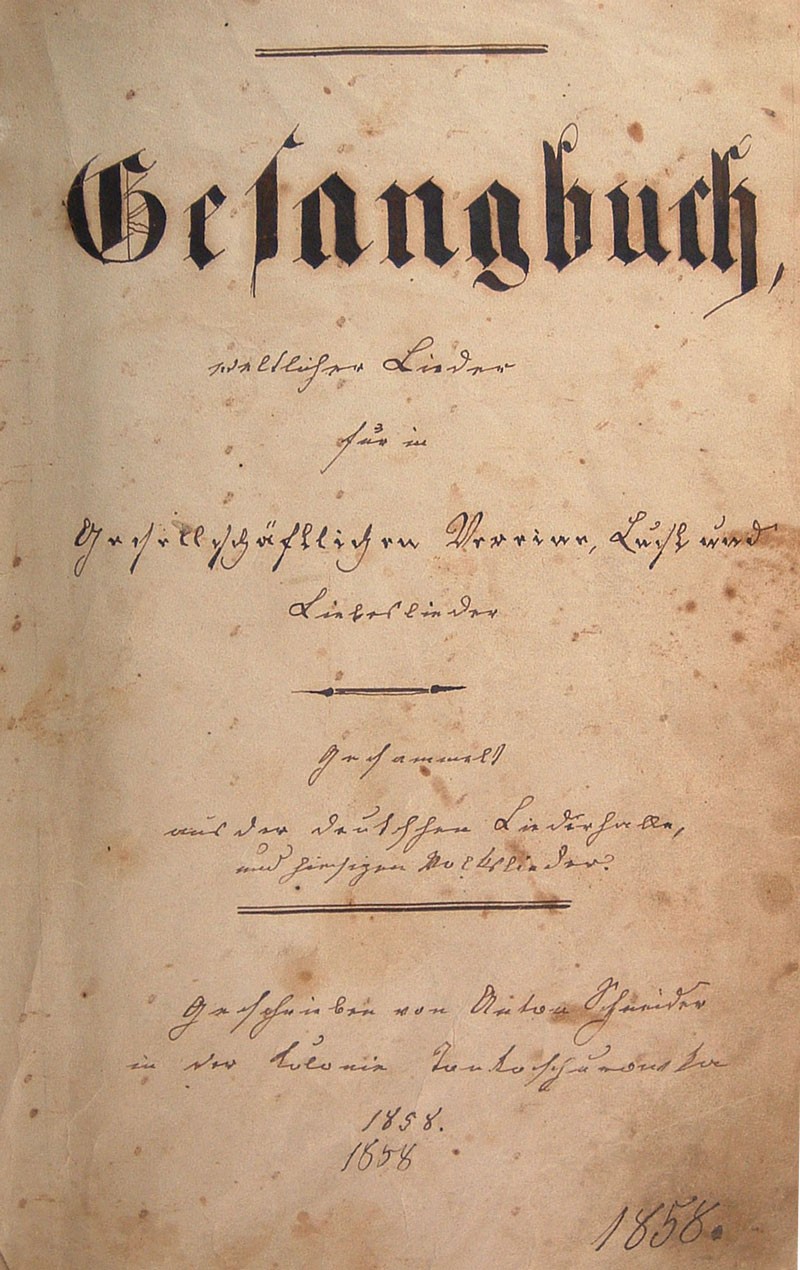 Gesangbuch,
weltlicher Lieder
für in
Gesellschäftlichen Vereine, Lust und
Liebeslieder
Gesammelt
aus der deutschen Liederhalle,
und hiesigen Volkslieder.
Geschrieben von Anton Schneider
in der Kolonie Tonkoschurowka
1858.
1858
1858.